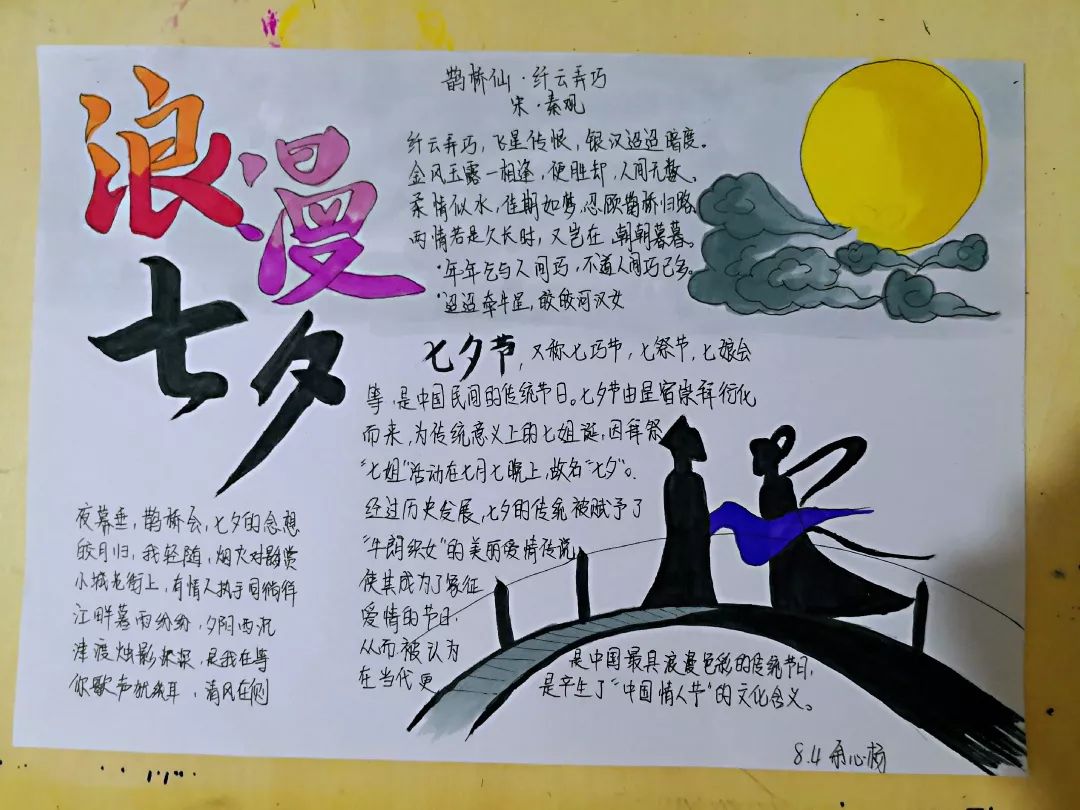 浪漫
七夕
鹊桥仙·纤云弄巧
宋·秦观
纤云弄巧,飞星传恨,银汉迢迢暗度。
金风玉露一相逢,便胜却,人间无数。
柔情似水,佳期如梦,忍顾鹊桥归路。
两情若是久长时,又岂在,朝朝暮暮。
·年年乞与人间巧,不道人间巧已多。
·迢迢牵牛星,皎皎河汉女
七夕节,又称七巧节,七祭节,七娘会
等,是中国民间的传统节日。七夕节由星宿崇拜衍化
而来,为传统意义上的七姐诞,因拜祭
“七姐”活动在七月七晚上,故名“七夕”。
经过历史发展,七夕的传统被赋予了
“牛朗织女”的美丽爱情传说,
使其成为了象征
爱情的节日,
从而被认为
在当代更
是中国最具浪漫色彩的传统节日,
是产生了“中国情人节”的文化含义。
夜幕垂,鹊桥会,七夕的念想
皎月归,我轻随,烟火对酌赏
小城老街上,有情人执手同徜徉
江畔暮雨纷纷,夕阴西沉
津渡烛影,是我在等
你歌声犹我耳,清风在侧
8.4 心杨